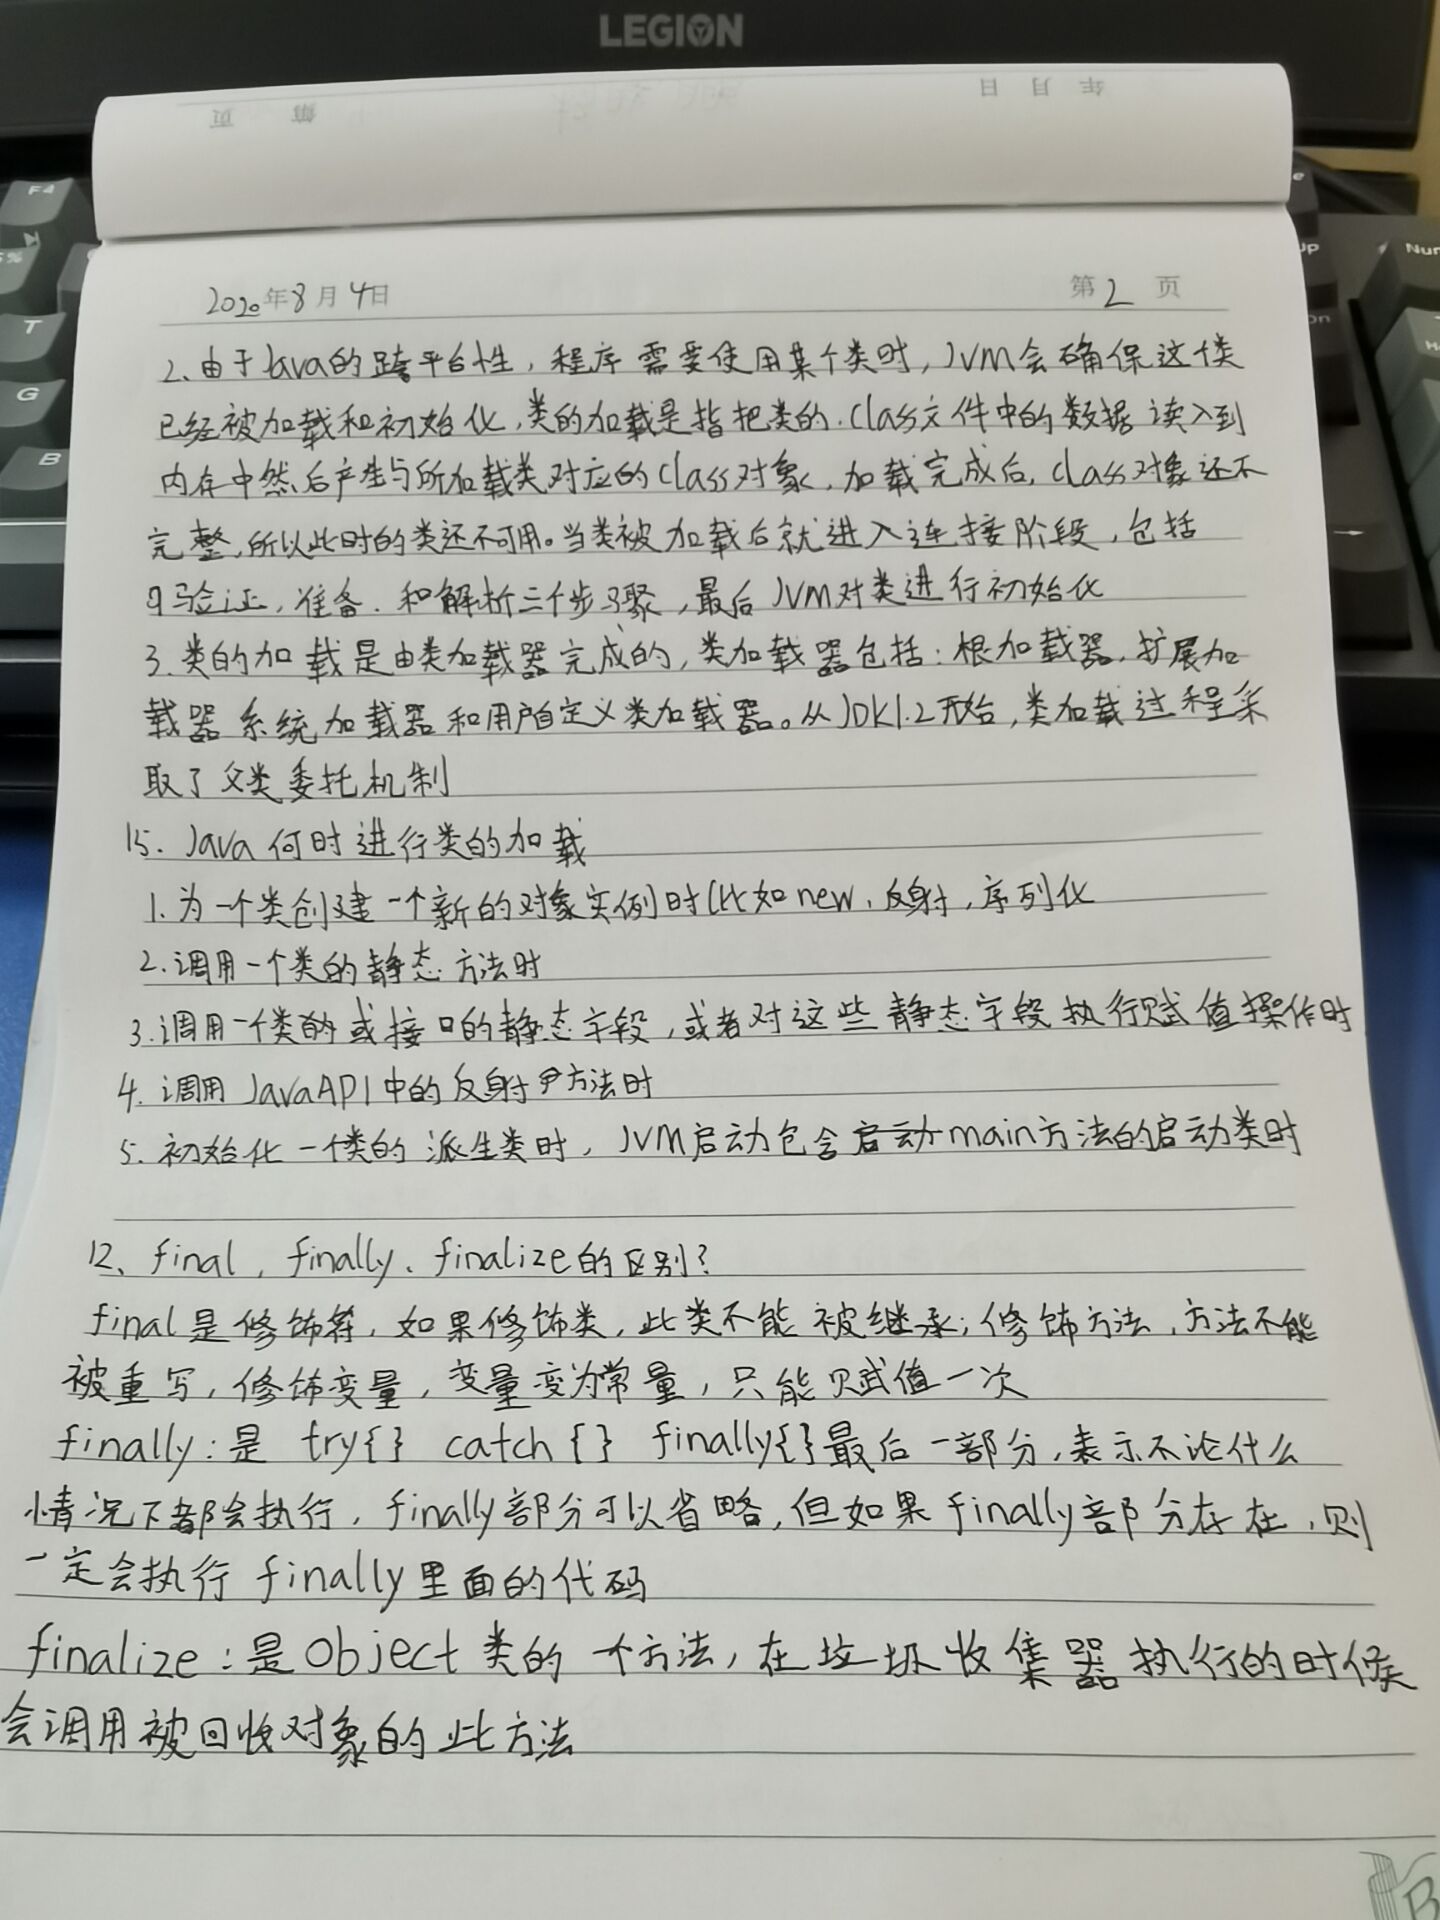 LEGION
年 月 日
第 页
2020年8月4日 第2页
2.由于Java的跨平台性,程序需要使用某个类时,JVM会确保这个类
已经被加载和初始化,类的加载是指把类的.class文件中的数据读入到
内存中然后产生与所加载类对应的Class对象,加载完成后,Class对象还不
完整,所以此时的类还不可用。当类被加载后就进入连接阶段,包括
验证,准备.和解析三个步骤,最后JVM对类进行初始化
3.类的加载是由类加载器完成的,类加载器包括:根加载器,扩展加
载器系统加载器和用户自定义类加载器。从JDK1.2开始,类加载过程采
取了父类委托机制
15. Java何时进行类的加载
1.为一个类创建一个新的对象实例时(比如new,反射,序列化
2.调用一个类的静态方法时
3.调用一个类的或接口的静态字段,或者对这些静态字段执行赋值操作时
4.调用JavaAPI中的反射方法时
5.初始化一个类的派生类时,JVM启动包含启动main方法的启动类时
12、final,finally、finalize的区别?
final是修饰符,如果修饰类,此类不能被继承;修饰方法,方法不能
被重写,修饰变量,变量变为常量,只能赋值一次
finally:是 try{} catch{} finally{}最后一部分,表示不论什么
情况下都会执行,finally部分可以省略,但如果finally部分存在,则
一定会执行finally里面的代码
finalize:是Object类的一个方法,在垃圾收集器执行的时候
会调用被回收对象的此方法
F4
5%
T
G
B